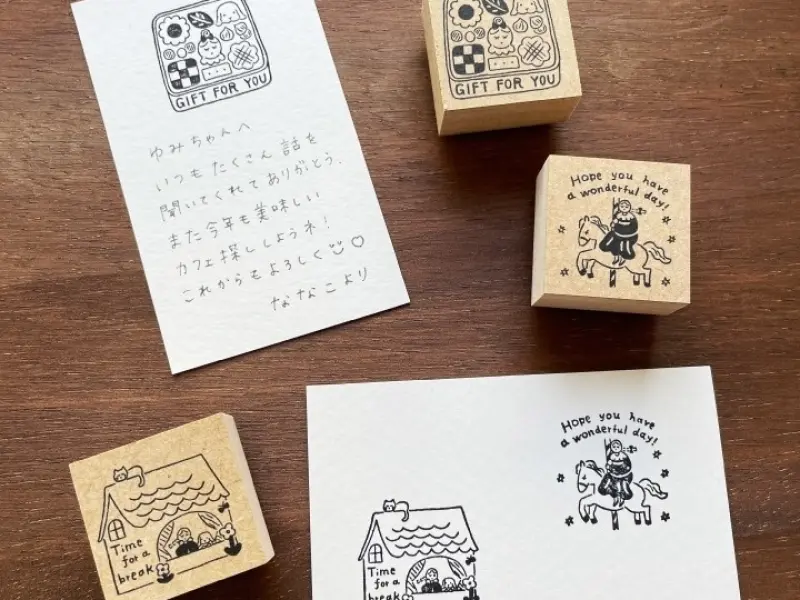 GIFT FOR YOU
ゆみちゃんへ
いつもたくさん話を
聞いてくれてありがとう。
また今年も美味しい
カフェ探ししようね!
これからもよろしく
ななこより
GIFT FOR YOU
Hope you have
a wonderful day!
Time
for a
break
Hope you have
a wonderful day!
Time
for a
break